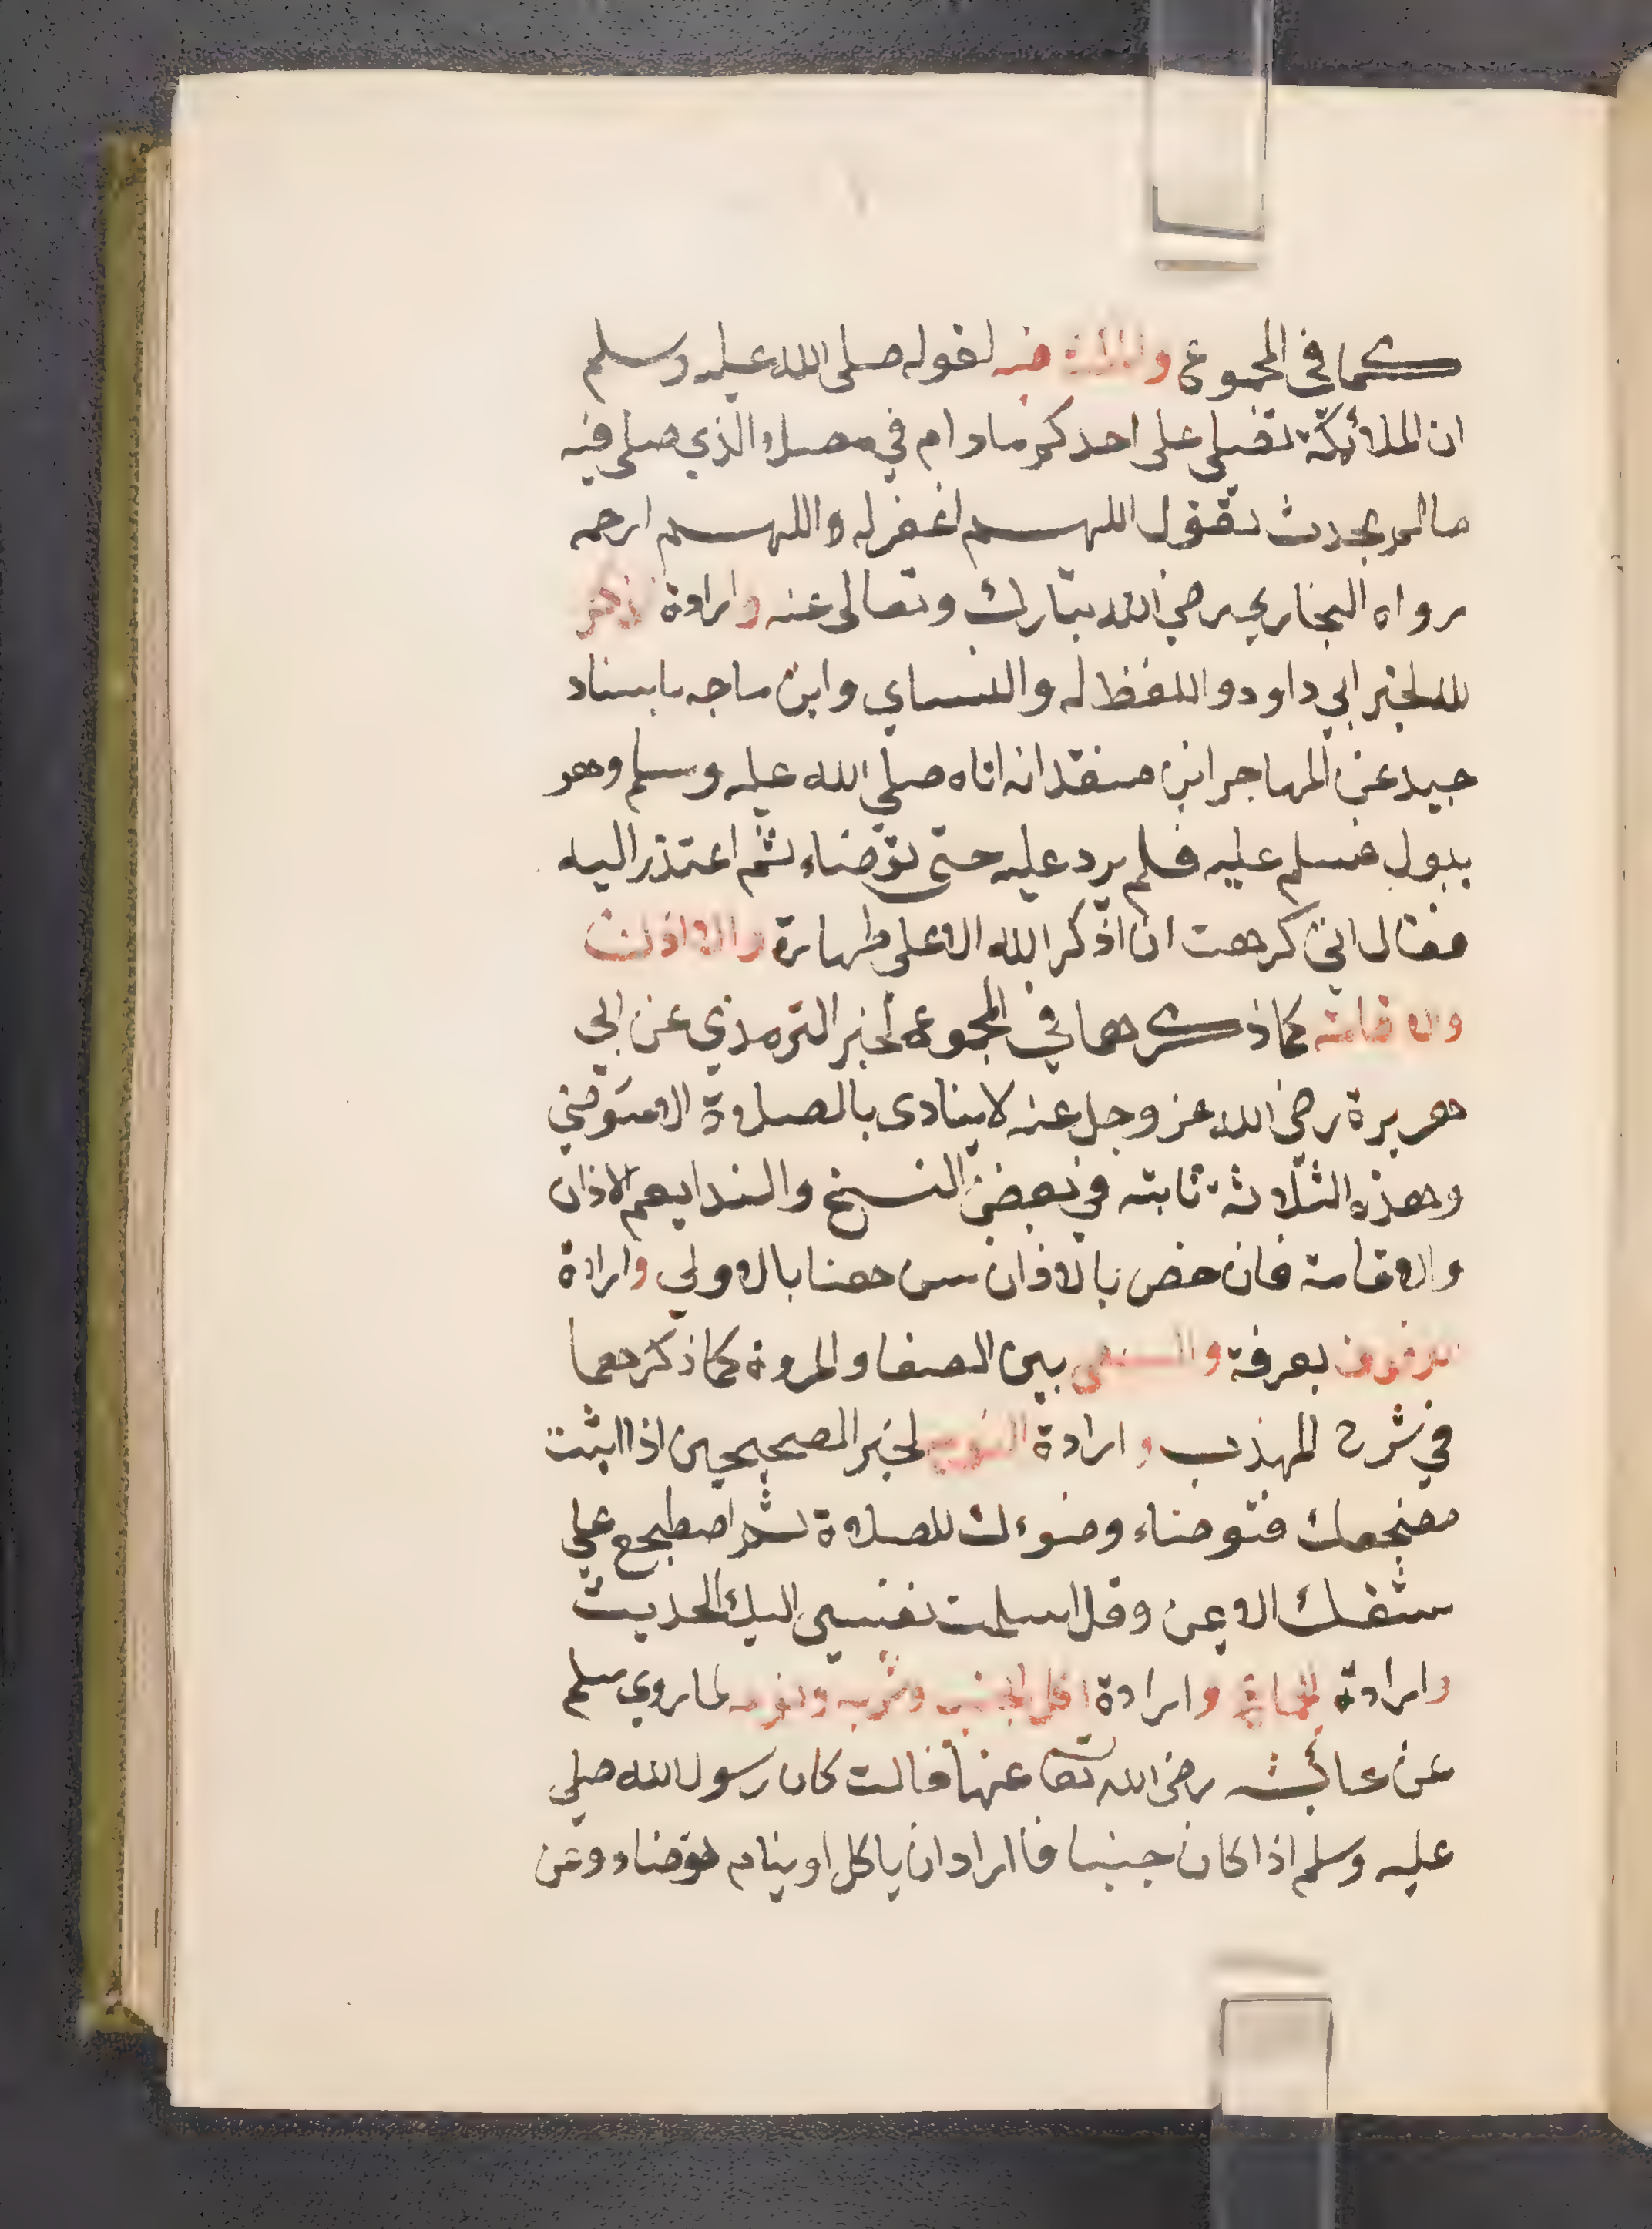 كما في المجموع والمكث فيه لقوله صلى الله عليه وسلم
ان الملائكة تصلي على احدكم مادام في مصلاه الذي صلى فيه
مالم يحدث تقول اللهم اغفر له واللهم ارحمه
رواه البخاري رضي الله تبارك وتعالى عنه وارادة ذكر
لله لخبر ابي داود واللفظ له والنساي وابن ماجه باسناد
جيد عن المهاجر ابن منقذ انه اتاه صلي الله عليه وسلم وهو
يبول فسلم عليه فلم يرد عليه حتى توضاء ثم اعتذر اليه
فقال اني كرهت ان اذكر الله الا على طهارة والاذان
والاقامة كما ذكرهما في المجموع لخبر الترمذي عن ابي
هريرة رضي الله عز وجل عنه لا ينادى بالصلاة الا متوضئ
وهذه الثلاثة ثابته في بعض النسخ والندا يعم الاذان
والاقامة فان خص بالاذان سن هنا بالاولي وارادة
الوقوف بعرفة والسعي بين الصفا والمروة كما ذكرهما
في شرح المهذب وارادة النوم لخبر الصحيحين اذا اتيت
مضجعك فتوضاء وضوءك للصلاة ثم اضطجع علي
شقك الايمن وقل اسلمت نفسي اليك الحديث
وارادة الجماع وارادة اكل الجنب وشربه ونومه لما روي مسلم
عن عائشه رضي الله تعا عنها قالت كان رسول الله صلي
عليه وسلم اذا كان جنبا فاراد ان ياكل او ينام توضاء وعن